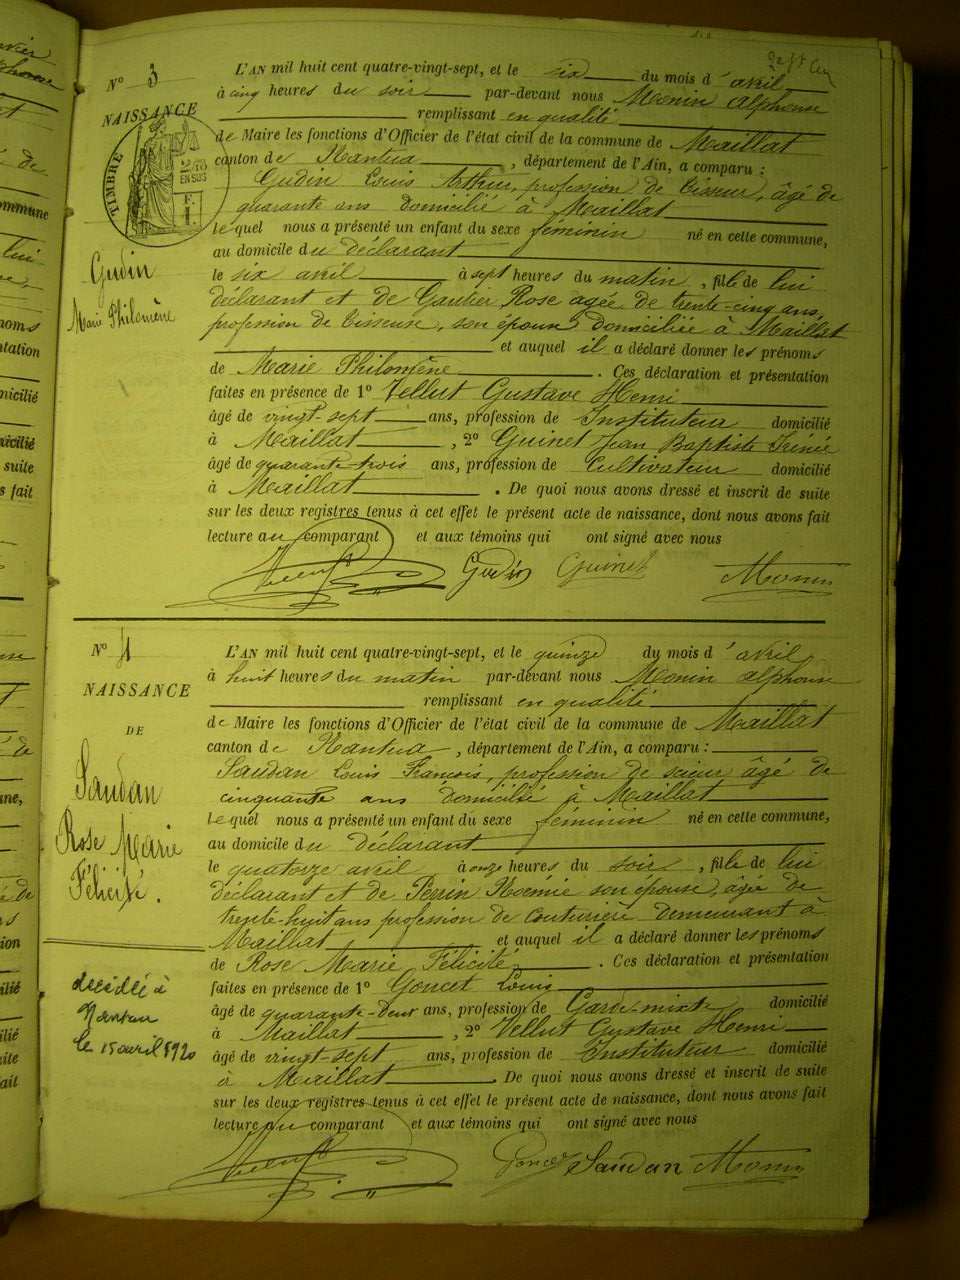 N° 3
NAISSANCE
TIMBRE
2/10
EN SUS
F.
1.
Gudin
Marie Philomène
L'AN mil huit cent quatre-vingt-sept, et le six du mois d'avril
à cinq heures du soir par-devant nous Monin Alphonse
remplissant en qualité
de Maire les fonctions d'Officier de l'état civil de la commune de Maillat
canton de Nantua, département de l'Ain, a comparu :
Gudin Louis Arthur, profession de tisseur, âgé de
quarante ans domicilié à Maillat
lequel nous a présenté un enfant du sexe féminin né en cette commune,
au domicile du déclarant
le six avril à sept heures du matin, fille de lui
déclarant et de Gautier Rose agée de trente-cinq ans,
profession de tisseuse, son épouse domiciliée à Maillat
et auquel il a déclaré donner les prénoms
de Marie Philomène. Ces déclaration et présentation
faites en présence de 1° Vellut Gustave Henri
âgé de vingt-sept ans, profession de Instituteur domicilié
à Maillat, 2° Guinet Jean Baptiste Irénée
âgé de quarante trois ans, profession de Cultivateur domicilié
à Maillat. De quoi nous avons dressé et inscrit de suite
sur les deux registres tenus à cet effet le présent acte de naissance, dont nous avons fait
lecture au comparant et aux témoins qui ont signé avec nous
Gudin Guinet Monin
N° 4
NAISSANCE
DE
Saudan
Rose Marie
Félicité.
décédée à
Nantua
le 15 avril 1920
L'AN mil huit cent quatre-vingt-sept, et le quinze du mois d'avril
à huit heures du matin par-devant nous Monin Alphonse
remplissant en qualité
de Maire les fonctions d'Officier de l'état civil de la commune de Maillat
canton de Nantua, département de l'Ain, a comparu :
Saudan Louis François, profession de scieur âgé de
cinquante ans domicilié à Maillat
lequel nous a présenté un enfant du sexe féminin né en cette commune,
au domicile du déclarant
le quatorze avril à onze heures du soir, fille de lui
déclarant et de Perrin Noémie son épouse, âgée de
trente-huit ans profession de couturière demeurant à
Maillat et auquel il a déclaré donner les prénoms
de Rose Marie Félicité. Ces déclaration et présentation
faites en présence de 1° Goncet Louis
âgé de quarante-deux ans, profession de Garde-mixte domicilié
à Maillat, 2° Vellut Gustave Henri
âgé de vingt-sept ans, profession de Instituteur domicilié
à Maillat. De quoi nous avons dressé et inscrit de suite
sur les deux registres tenus à cet effet le présent acte de naissance, dont nous avons fait
lecture au comparant et aux témoins qui ont signé avec nous
Goncet Saudan Monin